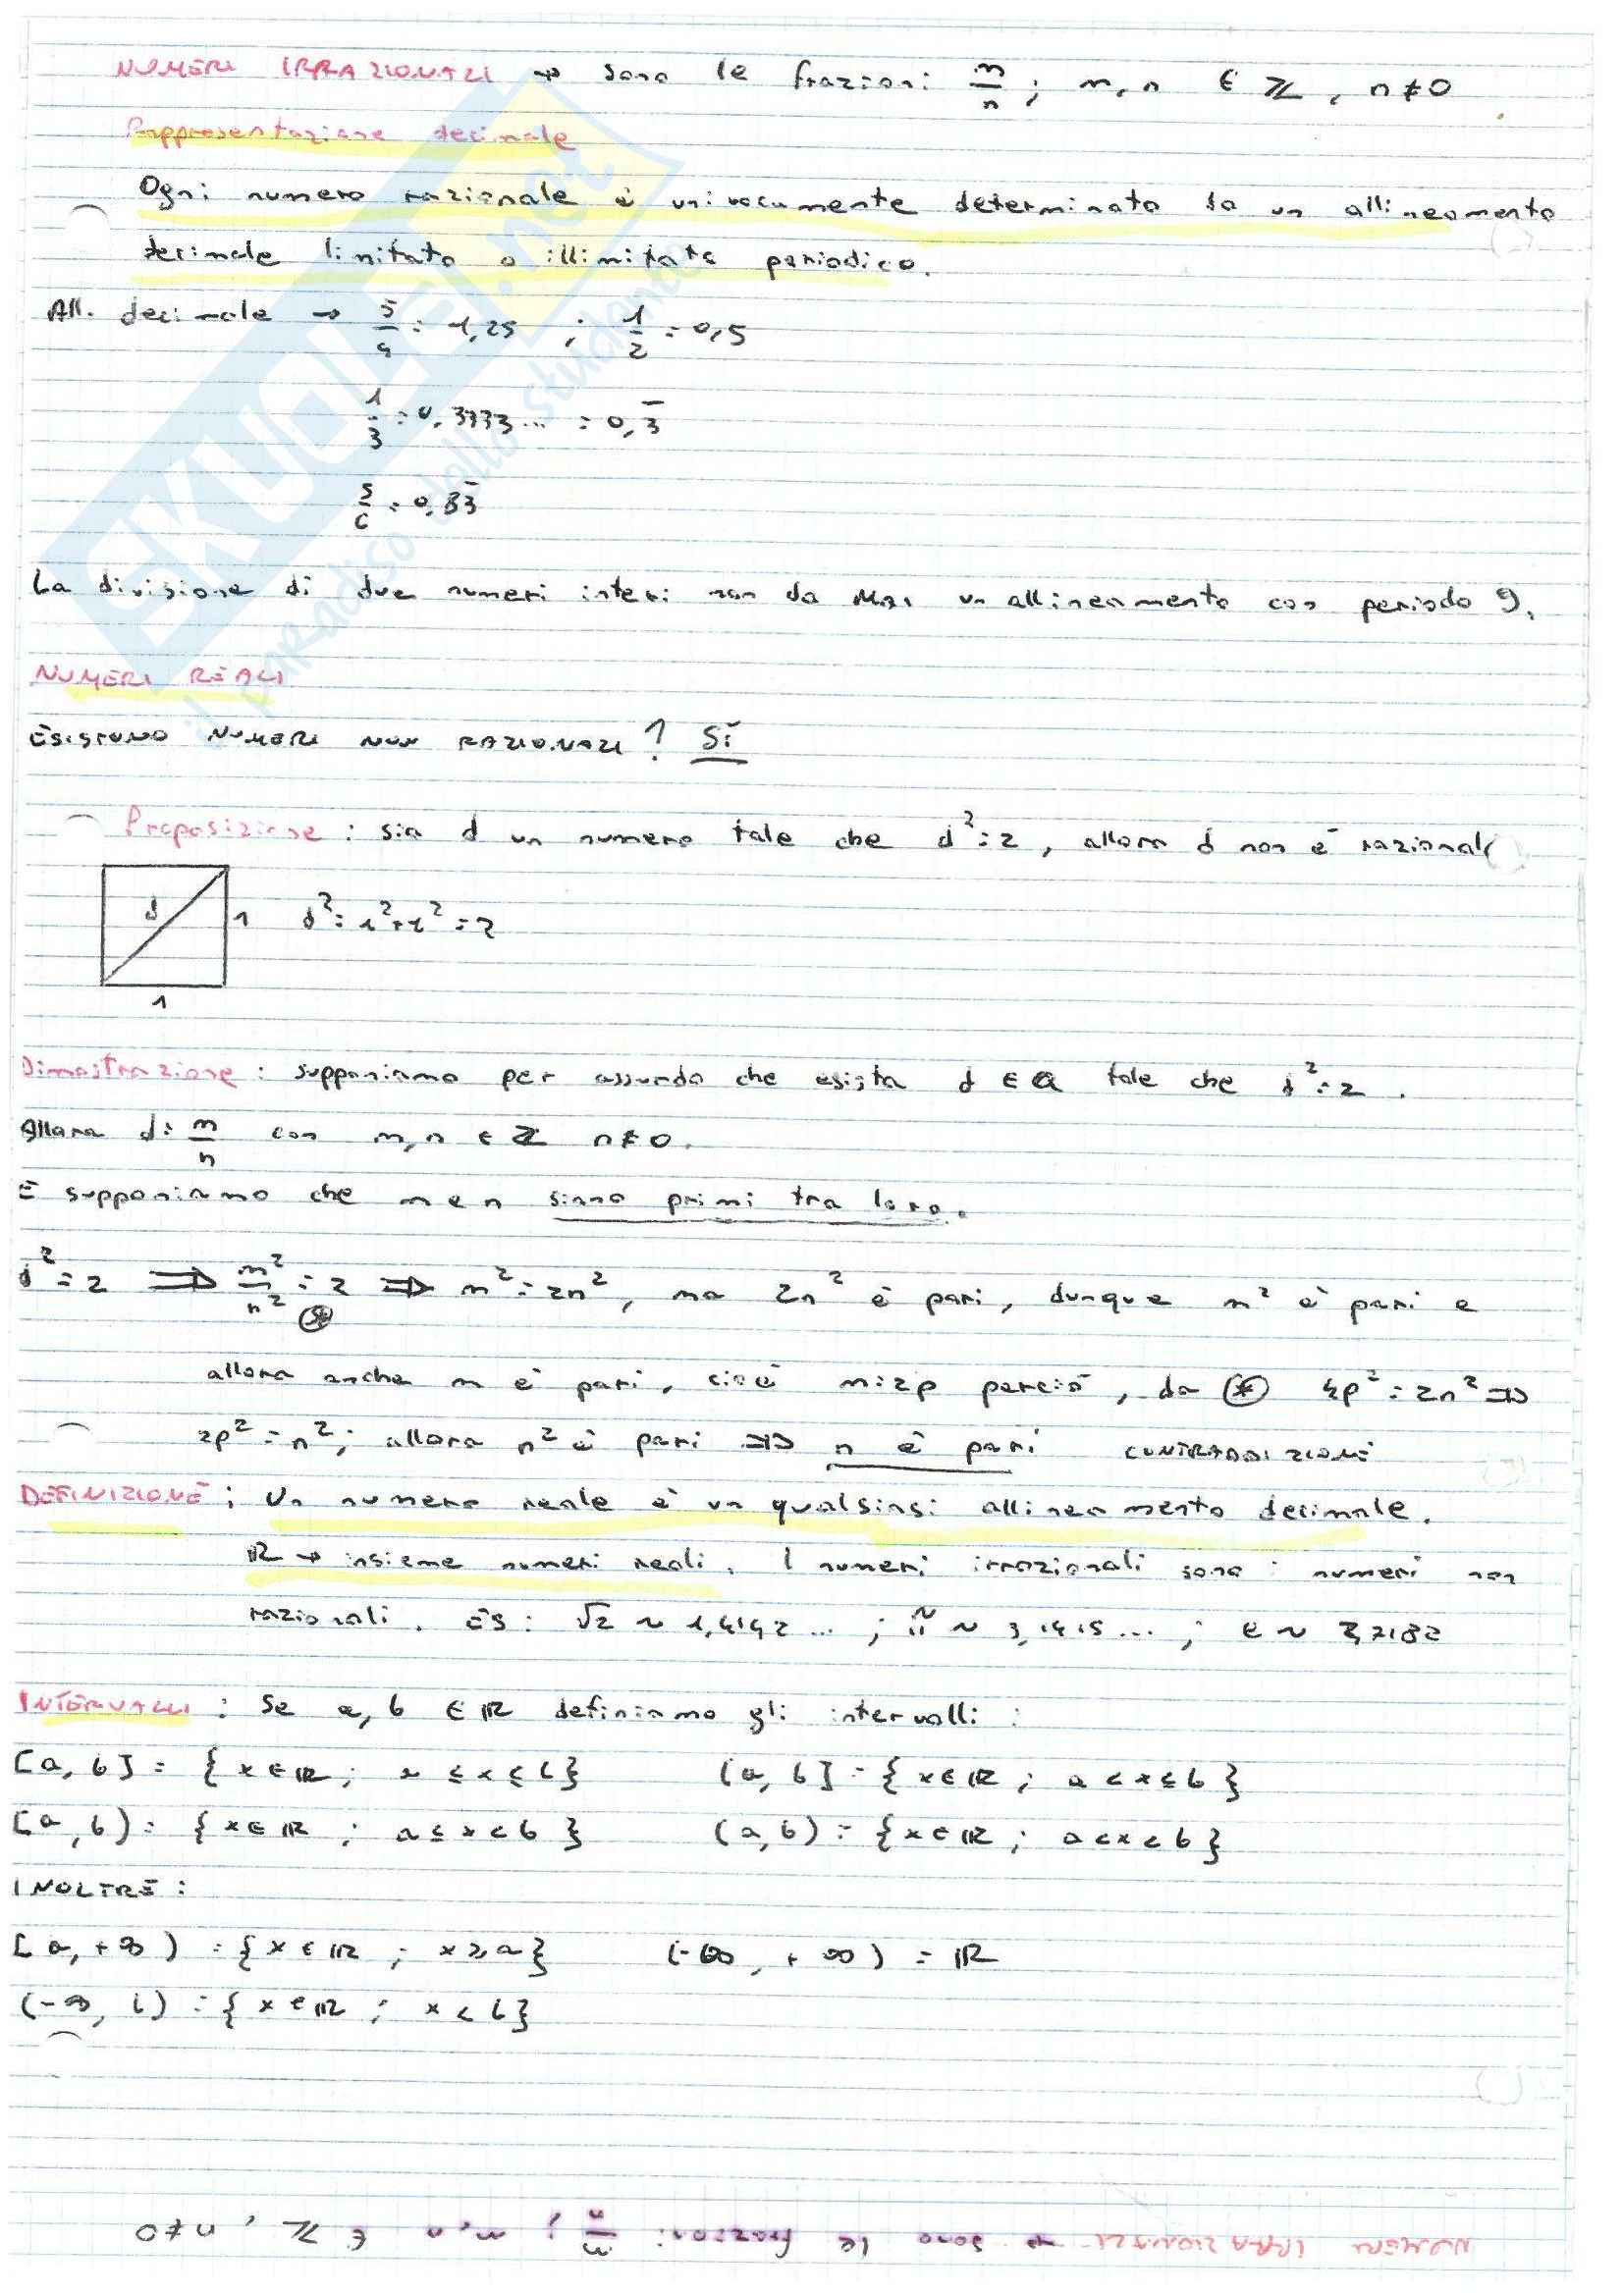 NUMERI IRRAZIONALI → sono le frazioni m/n ; m, n ∈ ℤ, n ≠ 0
Rappresentazione decimale
Ogni numero razionale è univocamente determinato da un allineamento
decimale limitato o illimitato periodico.
All. decimale → 5/4 = 1,25 ; 1/2 = 0,5
1/3 = 0,3333... = 0,3̅
5/6 = 0,83̅
La divisione di due numeri interi non da mai un allineamento con periodo 9.
NUMERI REALI
ESISTONO NUMERI NON RAZIONALI? Sì
Proposizione: sia d un numero tale che d² = 2, allora d non è razionale
d
1
d² = 1² + 1² = 2
1
Dimostrazione: supponiamo per assurdo che esista d ∈ Q tale che d² = 2.
Allora d = m/n con m, n ∈ ℤ n ≠ 0.
E supponiamo che m e n siano primi tra loro.
d² = 2 ⟹ m²/n² = 2 ⟹ m² = 2n², ma 2n² è pari, dunque m² è pari e
⊛
allora anche m è pari, cioè m = 2p perciò, da ⊛ 4p² = 2n² ⟹
2p² = n²; allora n² è pari ⟹ n è pari CONTRADDIZIONE
DEFINIZIONE: Un numero reale è un qualsiasi allineamento decimale.
ℝ → insieme numeri reali. I numeri irrazionali sono i numeri non
razionali. ES: √2 ~ 1,4142... ; π ~ 3,1415... ; e ~ 2,7182
INTERVALLI: Se a, b ∈ ℝ definiamo gli intervalli:
[a, b] = {x ∈ ℝ ; a ≤ x ≤ b} (a, b] = {x ∈ ℝ ; a < x ≤ b}
[a, b) = {x ∈ ℝ ; a ≤ x < b} (a, b) = {x ∈ ℝ ; a < x < b}
INOLTRE:
[a, +∞) = {x ∈ ℝ ; x ≥ a} (-∞, +∞) = ℝ
(-∞, b) = {x ∈ ℝ ; x < b}
NUMERI IRRAZIONALI → sono le frazioni m/n ; m, n ∈ ℤ, n ≠ 0
SKUOLA.net
il paradiso dello studente